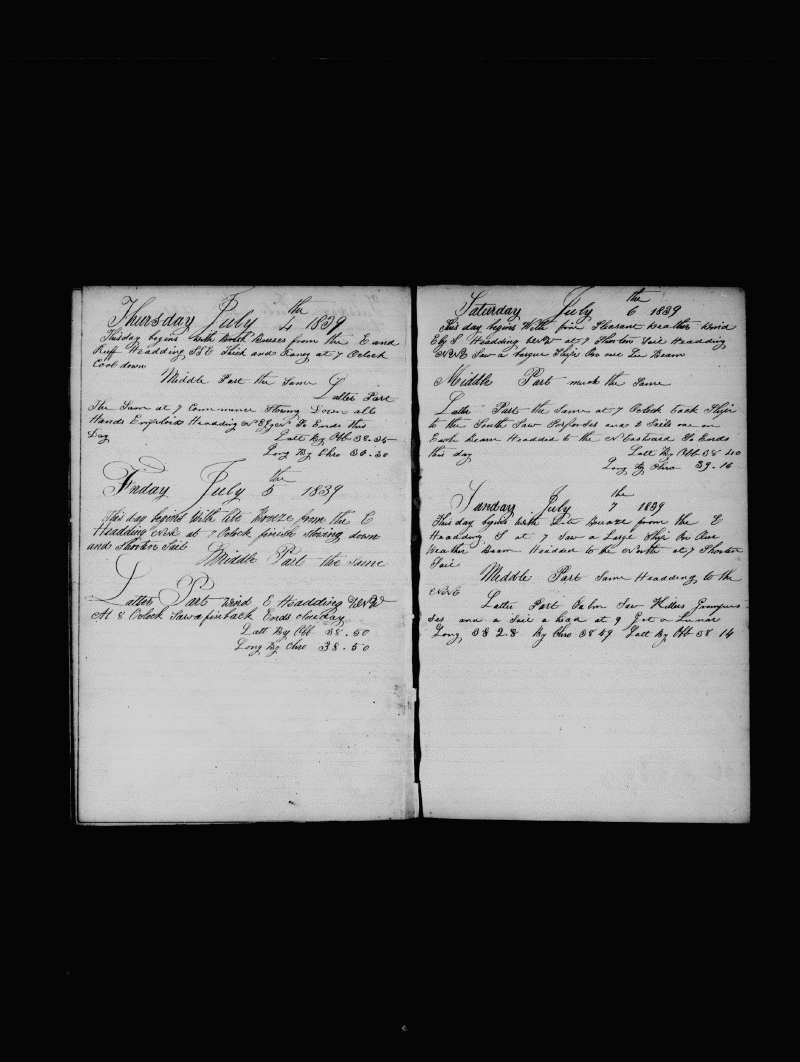 Thursday July 4 the 1839
This day begins with Brisk Breezes from the E and
Ruff Headding SSE Thick and Raney at 7 Oclock
Cool down
Middle Part the Same
Latter Part
The Same at 7 Commence Stowing Down all
Hands Employed Headding
So Ends this
Day
Latt By Obb 38.35
Long By Chro
Friday July 5 the 1839
This day begins with lite Breeze from the E
Headding at 7 Oclock finish Stowing down
and Shorten Sail
Middle Part the same
Latter Part wind E Headding
At 8 Oclock Saw a finback Ends this day
Latt By Obb 38.50
Long By Chro 38.50
Saturday July 6 the 1839
This day begins With fine Pleasant weather Wind
E by S Headding at 7 Shorten Sail Headding
NNE Saw a barque Ship On our Lee Beam
Middle Part much the Same
Latter Part the Same at 7 Oclock tack Ship
to the South Saw and 2 Sails one on
Each beam Headded to the N Eastward So Ends
this day
Latt By Obb 38 40
Long By Chro 39.16
Sunday July 7 the 1839
This day begins with Lite Breeze from the E
Headding S at 7 Saw a Large Ship On Our
Weather Beam Headded to the North at 7 Shorten
Sail
Middle Part Same Headding to the
NNE
Latter Part Calm Saw Killers Grampus
ses and a Sail a head at 9 Got a Lunar
Long 38 28 By Chro 38 59 Latt By Obb 38 14